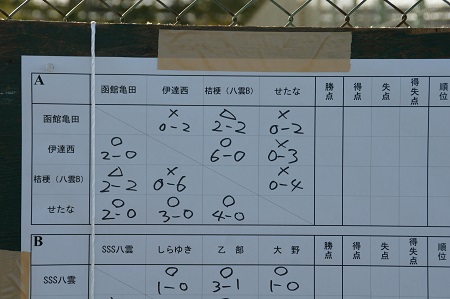 A 函館亀田 伊達西 桔梗（八雲B） せたな 勝点 得点 失点 得失点 順位
函館亀田 × 0-2 △ 2-2 × 0-2
伊達西 ○ 2-0 ○ 6-0 × 0-3
桔梗（八雲B） △ 2-2 × 0-6 × 0-4
せたな ○ 2-0 ○ 3-0 ○ 4-0
B SSS八雲 しらゆき 乙部 大野 勝点 得点 失点 得失点 順位
SSS八雲 ○ 1-0 ○ 3-1 ○ 1-0